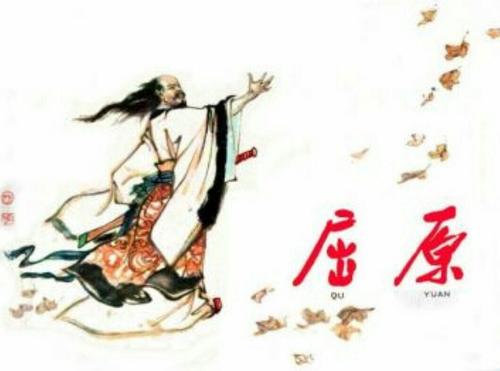 屈原
QU YUAN